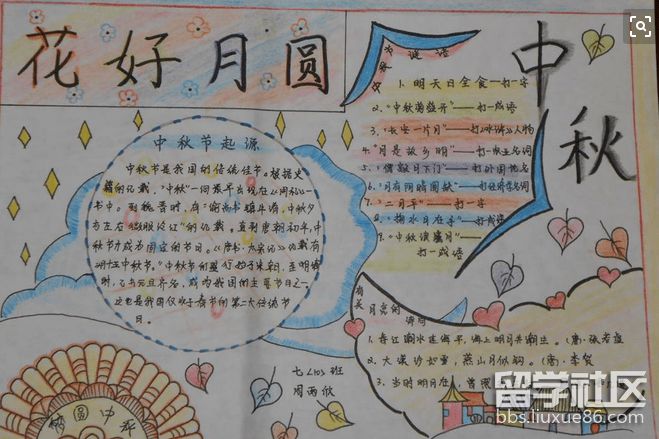 花好月圆
中秋
中秋节谜语
1.明天日全食—打一字
2.“中秋菊盛开”——打一成语
3.“长安一片月”——打《水浒》人物
4.“月是故乡明”——打一
5.“僧敲月下门”——打外国地名
6.“月有阴晴圆缺”——打经济名词
7.“二月平”——打一字
8.“掬水月在手”——打成语
9.“中秋
——打一成语
中秋节起源
中秋节是我国的传统佳节。根据史
籍的记载，“中秋”一词最早出现在《周礼》一
书中。到魏晋时，有“谕尚书镇牛渚，中秋夕
与左右微服泛江”的记载。直到唐朝初年，中
秋节才成为固定的节日。《唐书·太宗记》记载有
“八月十五中秋节”。中秋节的盛行始于宋朝，至明清
时，已与元旦齐名，成为我国的主要节日之一。
这也是我国仅次于春节的第二大传统节
日。
有关
月亮的诗句
1.春江潮水连海平，海上明月共潮生。（唐·张若虚
2.大漠沙如雪，燕山月似钩。（唐·李贺
3.当时明月在，曾照
七 班
周雨欣
团圆中秋
留学社区
bbs.liuxue86.com